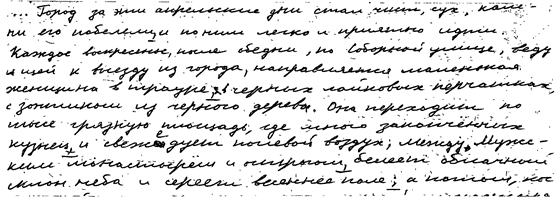 ... Город за эти апрельские дни стал чист, сух, кам-
ни его побелели и по ним легко и приятно идти.
Каждое воскресенье, после обедни, по Соборной улице, веду-
щей к выезду из города, направляется маленькая
женщина в трауре, в черных лайковых перчатках,
с зонтиком из черного дерева. Она переходит по
шоссе грязную площадь, где много закопченных
кузниц, и свежо дует полевой воздух; между Муж-
ским монастырем и острогом, белеет облачный
склон неба и сереет весеннее поле; а потом, ког